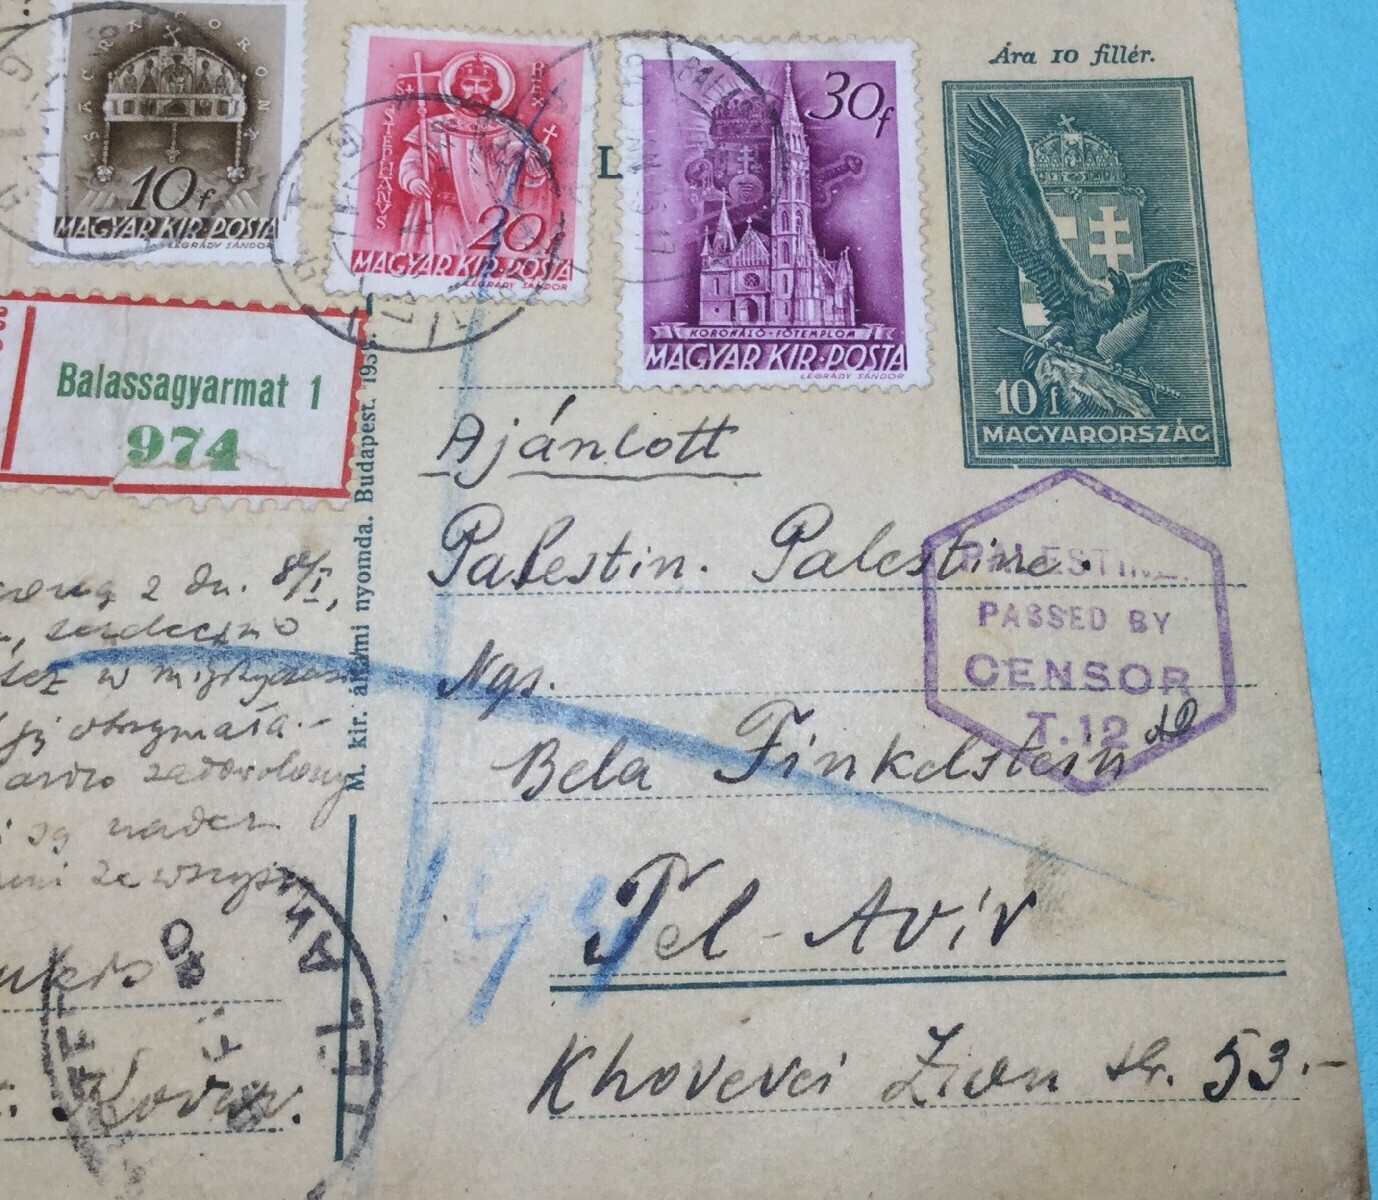 SACRA CORONA
10f
MAGYAR KIR·POSTA
LÉGRÁDY SÁNDOR
ST STEPHANUS REX
20f
MAGYAR KIR·POSTA
LÉGRÁDY SÁNDOR
L
30f
KORONÁZÓ-FŐTEMPLOM
MAGYAR KIR·POSTA
LÉGRÁDY SÁNDOR
Ára 10 fillér.
10 f
MAGYARORSZÁG
Balassagyarmat 1
974
M. kir. állami nyomda. Budapest. 193
Ajánlott
Palestin. Palestine.
Ngs.
Bela Finkelstein
Tel-Aviv
Khovevei Zion str. 53.-
PALESTINE.
PASSED BY
CENSOR
T.12
2 dn. 8/I,
serdeczno
w
ją otrzymała.-
zadowolony
są nader
ze
TEL AVIV